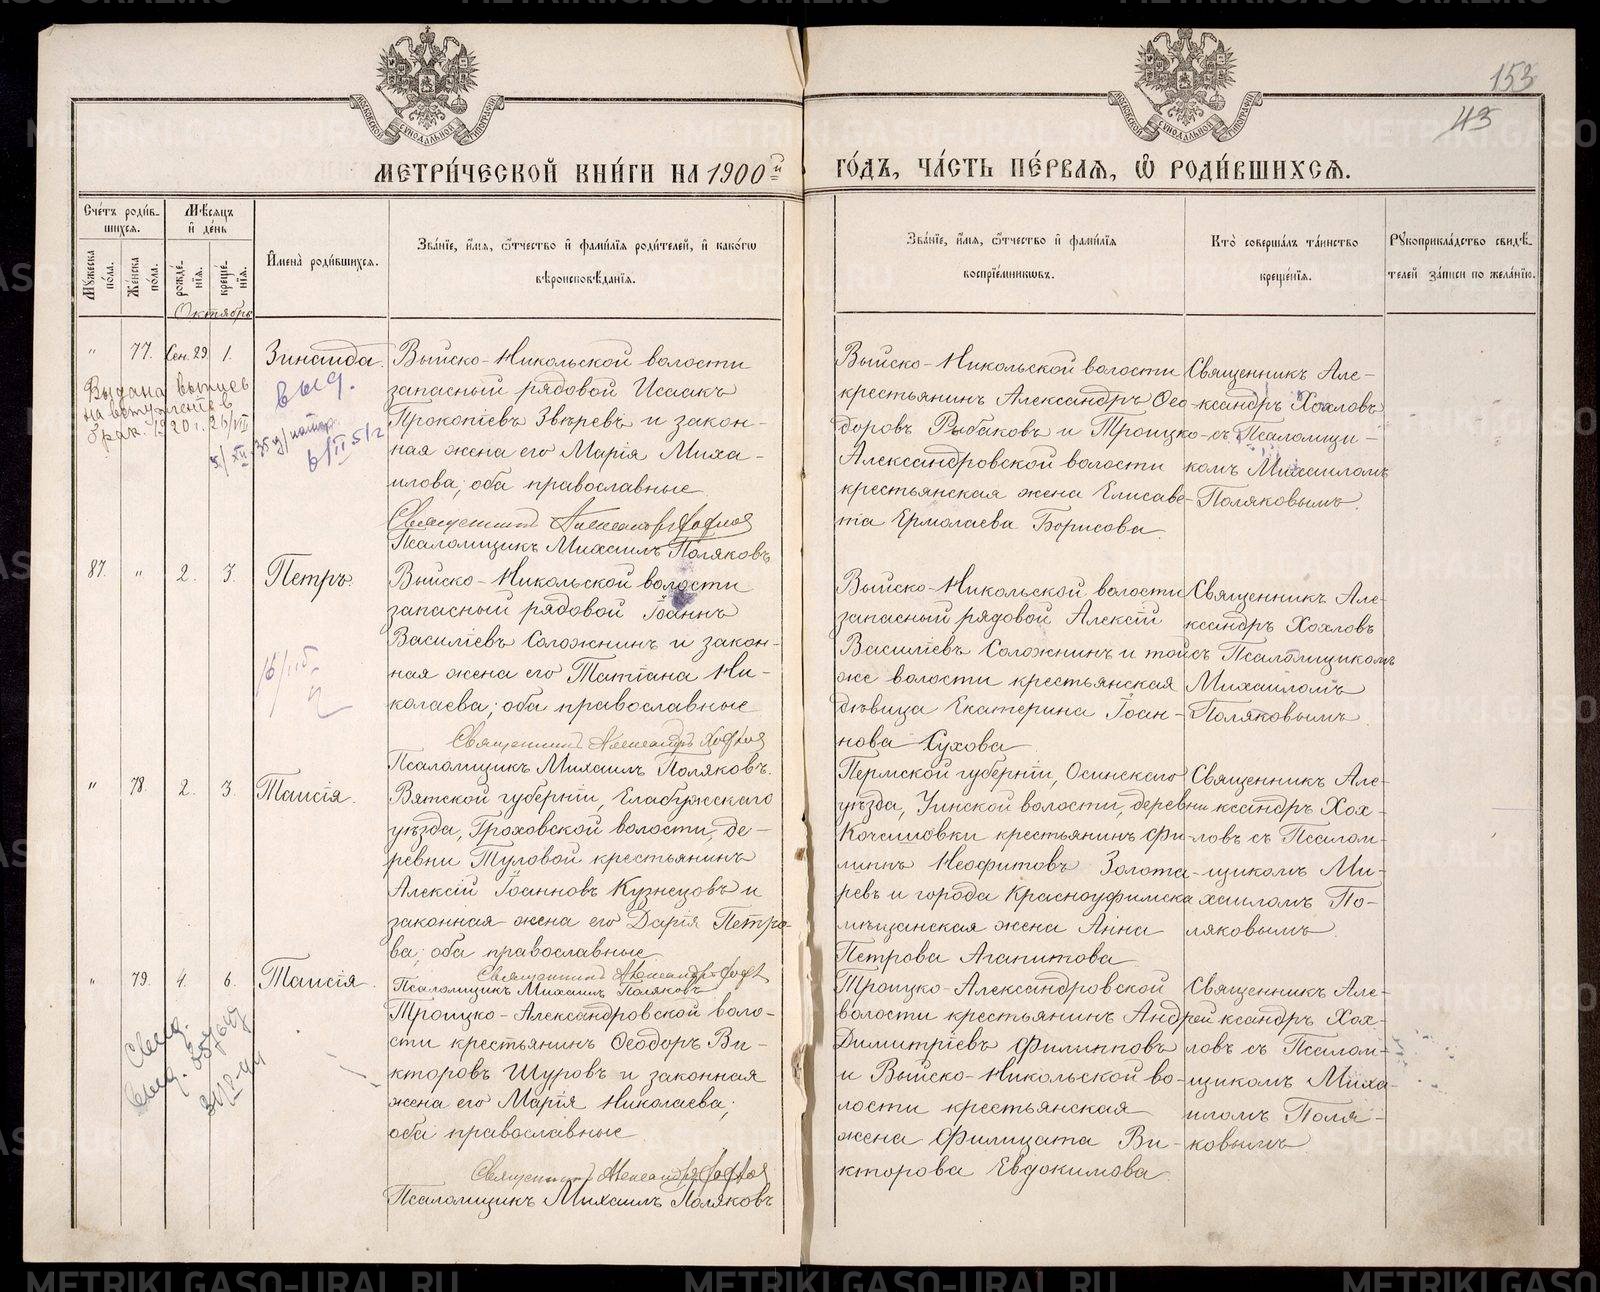 153
43
МОСКОВСКОЙ СѴНОДАЛЬНОЙ ТИПОГРАФІИ
МОСКОВСКОЙ СѴНОДАЛЬНОЙ ТИПОГРАФІИ
МЕТРИ́ЧЕСКОЙ КНИ́ГИ НА 1900й
ГО́ДЪ, ЧА́СТЬ ПЕ́РВАѦ, Ѡ҆ РОДИ́ВШИХСѦ.
Сче́тъ роди́в-
шихсѧ.
Мѣ́сѧцъ
и҆ де́нь
Мꙋ́жеска
по́ла.
Же́нска
по́ла.
рожде́-
нїѧ.
креще́-
нїѧ.
И҆мена̀ роди́вшихсѧ.
Зва́нїе, и҆́мѧ, ѻ҆́тчество и҆ фами́лїѧ роди́телей, и҆ како́гѡ
вѣроисповѣ́данїѧ.
Зва́нїе, и҆́мѧ, ѻ҆́тчество и҆ фами́лїѧ
воспрїе́мникѡвъ.
Кто̀ соверша́лъ та́инство
креще́нїѧ.
Рꙋкоприкла́дство свидѣ́-
телей за́писи по жела́нїю.
Октябрь
" 77. Сен. 29. 1. Зинаида.
Выйско-Никольской волости
запасный рядовой Исаакъ
Прокопіевъ Звѣревъ и закон-
ная жена его Марія Миха-
илова; оба православные.
Священникъ Александръ Хохловъ
Псаломщикъ Михаилъ Поляковъ
Выдана выпись
на вступленіе в
брак. 1920 г. 26/VII
выд.
Выйско-Никольской волости
крестьянинъ Александръ Ѳео-
доровъ Рыбаковъ и Троицко-
Александровской волости
крестьянская жена Елисаве-
та Ермолаева Борисова.
Священникъ Але-
ксандръ Хохловъ
съ Псаломщи-
комъ Михаиломъ
Поляковымъ.
87. " 2. 3. Петръ.
Выйско-Никольской волости
запасный рядовой Іоаннъ
Василіевъ Соложнинъ и закон-
ная жена его Татіана Ни-
колаева; оба православные
Священникъ Александръ Хохлов
Псаломщикъ Михаилъ Поляковъ.
Выйско-Никольской волости
запасный рядовой Алексій
Василіевъ Соложнинъ и той
же волости крестьянская
дѣвица Екатерина Іоан-
нова Сухова
Священникъ Але-
ксандръ Хохловъ
съ Псаломщикомъ
Михаиломъ
Поляковымъ.
" 78. 2. 3. Таисія.
Вятской губерніи, Елабужскаго
уѣзда, Гроховской волости, де-
ревни Туловой крестьянинъ
Алексій Іоанновъ Кузнецовъ и
законная жена его Дарія Петро-
ва; оба православные.
Священникъ Александръ Хохл
Псаломщикъ Михаилъ Поляковъ
Пермской губерніи, Осинскаго
уѣзда, Уинской волости, деревни
Кочешовки крестьянинъ Фи-
липпъ Неофитовъ Золота-
ревъ и города Красноуфимска
мѣщанская жена Анна
Петрова Агапитова
Священникъ Але-
ксандръ Хох-
ловъ съ Псалом-
щикомъ Ми-
хаиломъ По-
ляковымъ.
" 79. 4. 6. Таисія.
Троицко-Александровской воло-
сти крестьянинъ Ѳеодоръ Ви-
кторовъ Шуровъ и законная
жена его Марія Николаева;
оба православные
Священникъ Александръ Хохлов
Псаломщикъ Михаилъ Поляковъ
Троицко-Александровской
волости крестьянинъ Андрей
Димитріевъ Филипповъ
и Выйско-Никольской во-
лости крестьянская
жена Филицата Ви-
кторова Евдокимова.
Священникъ Але-
ксандръ Хох-
ловъ съ Псалом-
щикомъ Миха-
иломъ Поля-
ковымъ.
METRIKI.GASO-URAL.RU